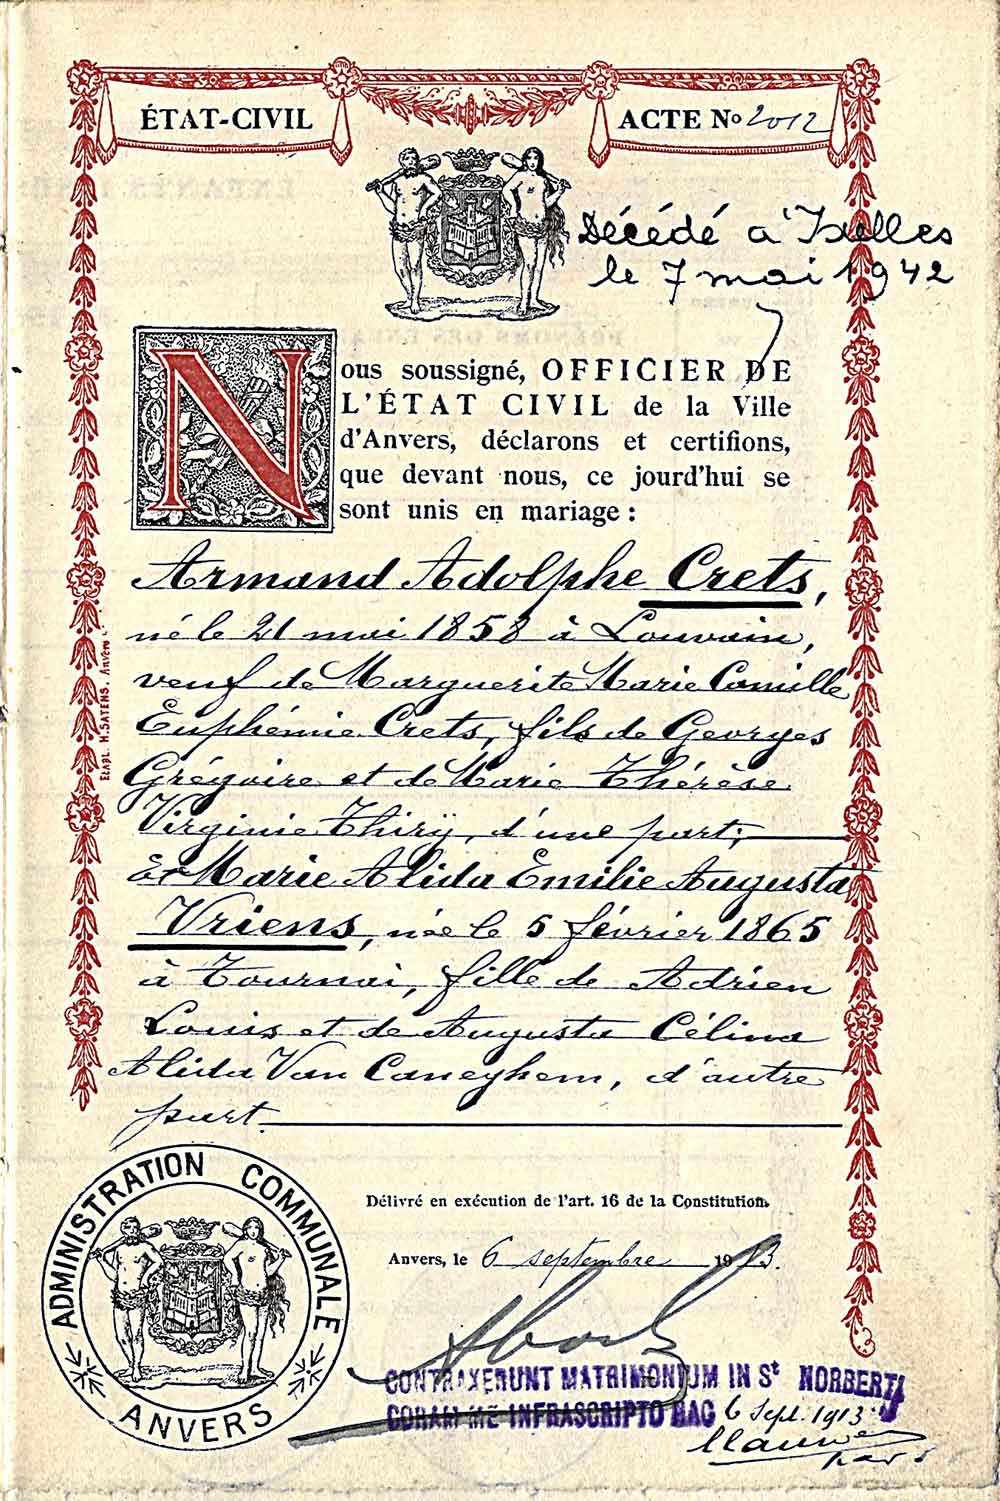 ÉTAT-CIVIL
ACTE Nº 2012
Décédé à Ixelles
le 7 mai 1942
Nous soussigné, OFFICIER DE
L'ÉTAT CIVIL de la Ville
d'Anvers, déclarons et certifions,
que devant nous, ce jourd'hui se
sont unis en mariage :
Armand Adolphe Crets,
né le 21 mai 1858 à Louvain,
veuf de Marguerite Marie Camille
Euphémie Crets, fils de Georges
Grégoire et de Marie Thérèse
Virginie Thirÿ, d'une part;
Et Marie Alida Emilie Augusta
Vriens, née le 5 février 1865
à Tournai, fille de Adrien
Louis et de Augusta Célina
Alida Van Caneghem, d'autre
part.
ETABL. H. SATENS. Anvers
Délivré en exécution de l'art. 16 de la Constitution.
Anvers, le 6 septembre 1913.
ADMINISTRATION COMMUNALE
ANVERS
CONTRAXERUNT MATRIMONIUM IN St NORBERTI
CORAM ME INFRASCRIPTO HAC 6 Sept. 1913